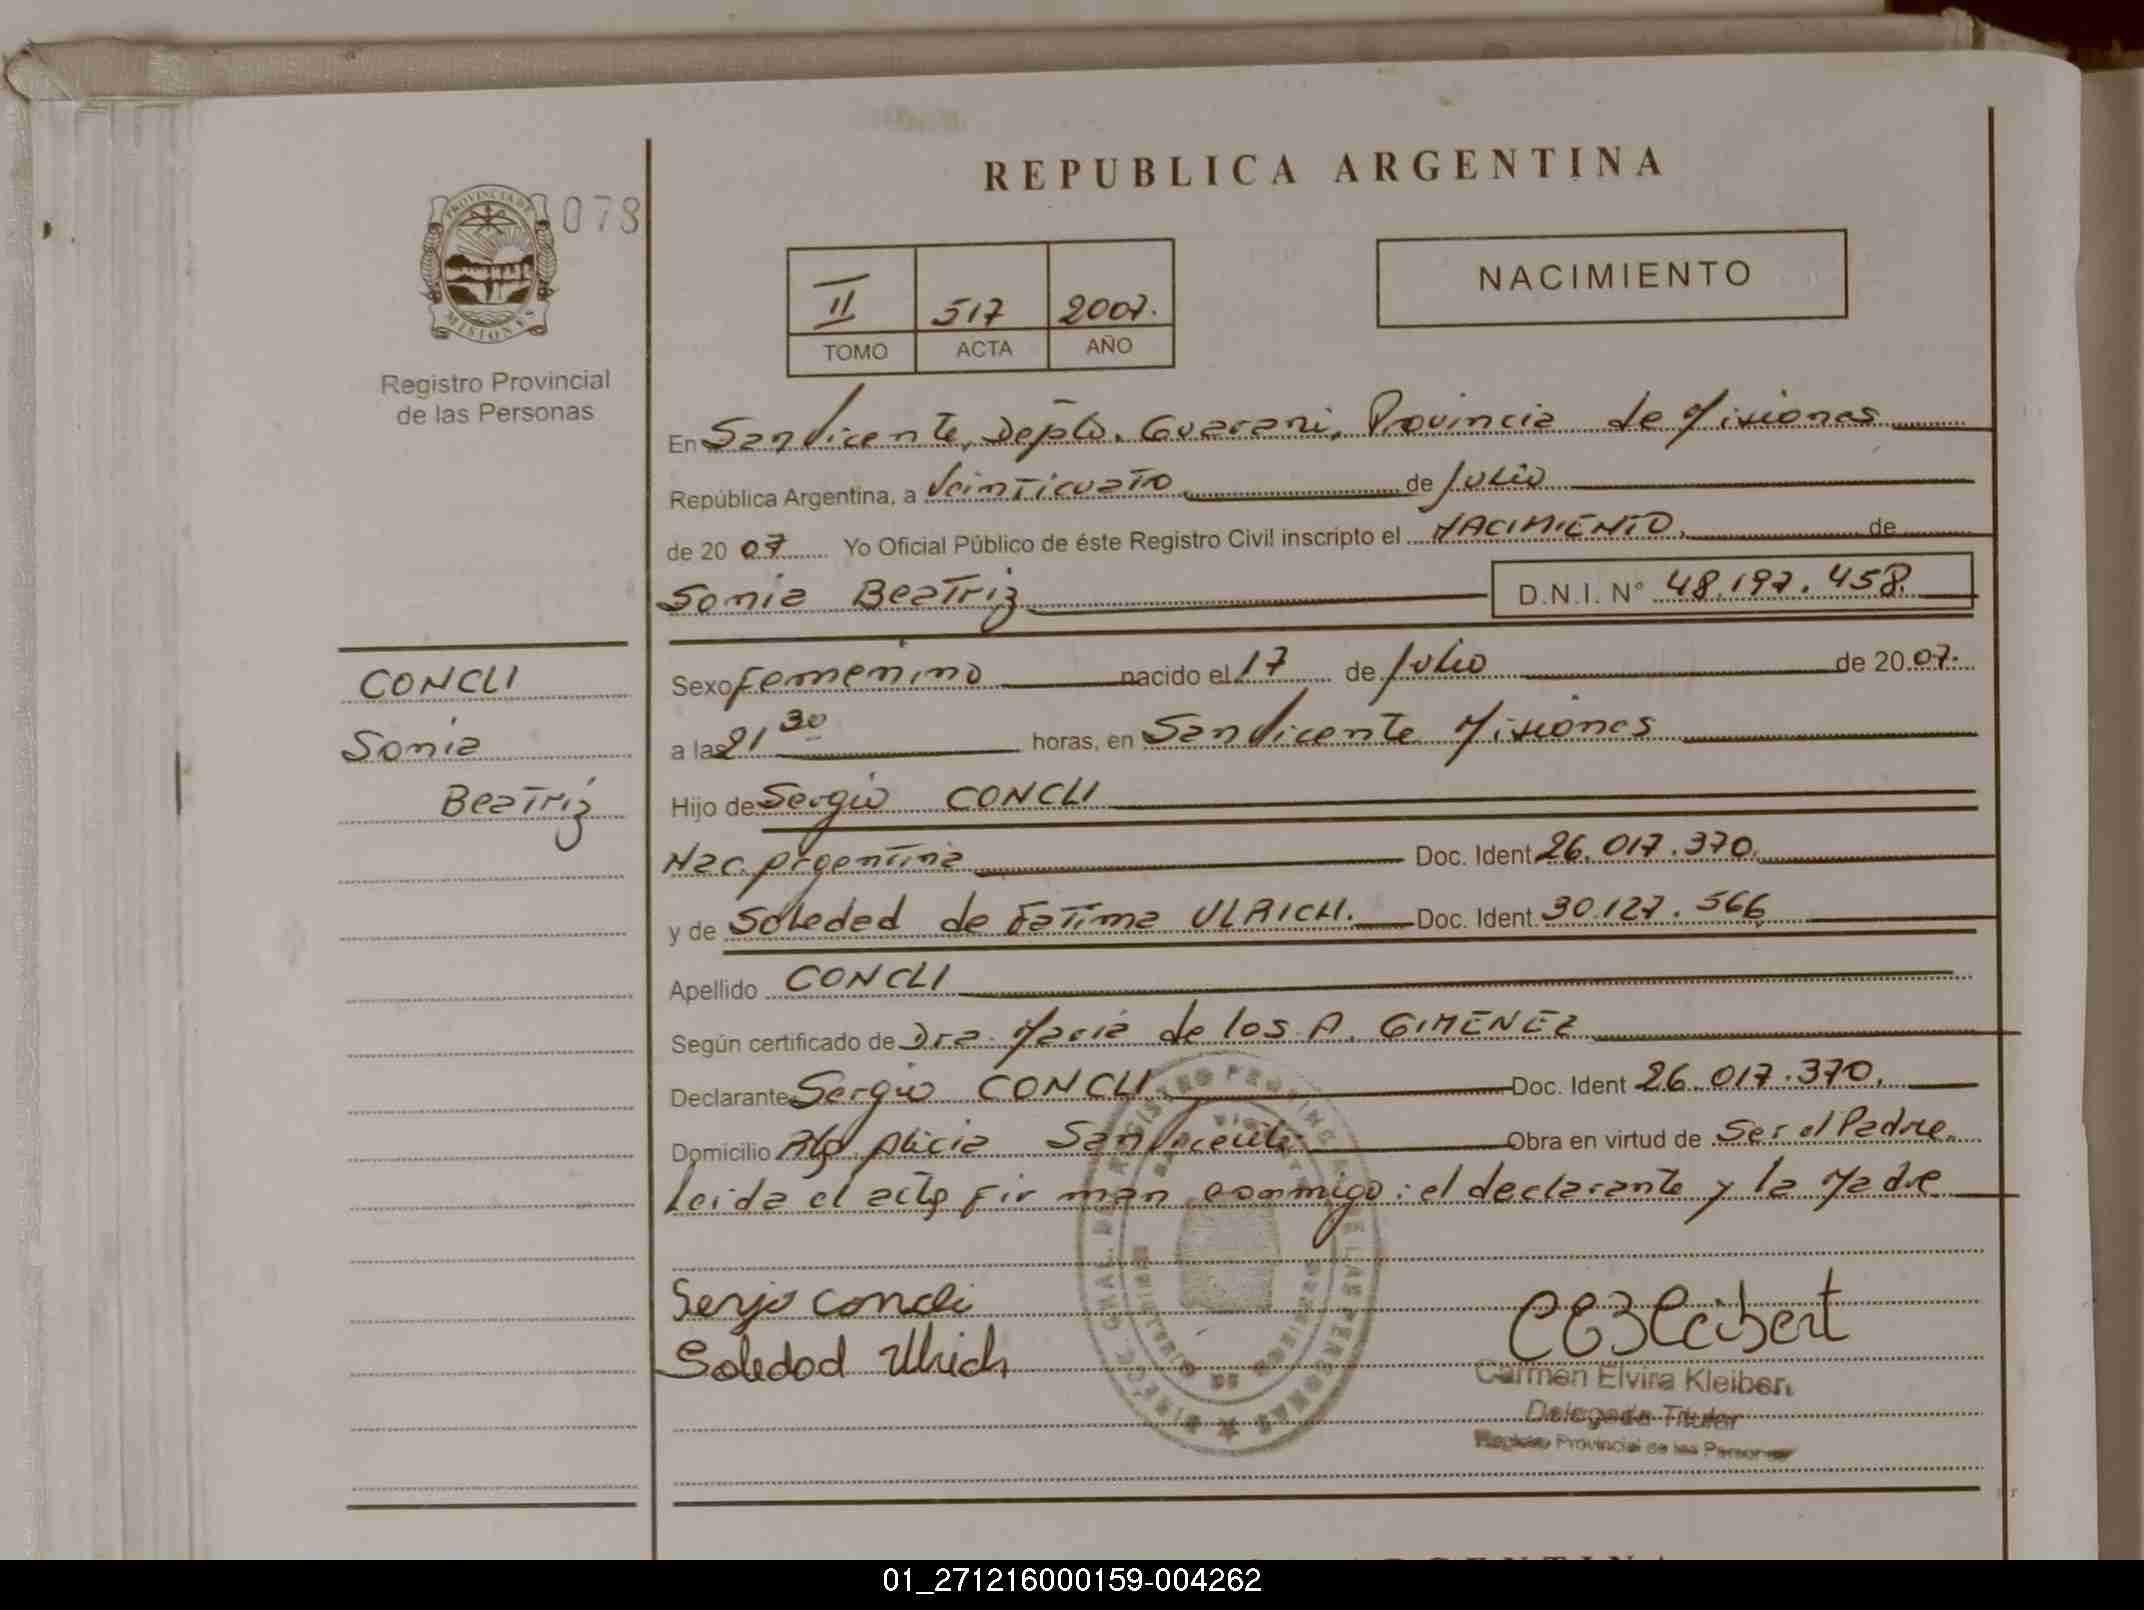 REPUBLICA ARGENTINA
PROVINCIA DE
MISIONES
078
Registro Provincial
de las Personas
II 517 2007.
TOMO ACTA AÑO
NACIMIENTO
En San Vicente, Depto. Guarani, Provincia de Misiones
República Argentina, a Veinticuatro de Julio
de 2007 Yo Oficial Público de éste Registro Civil inscripto el NACIMIENTO, de
Sonia Beatriz D.N.I. N° 48.197.458.
CONCLI
Sonia
Beatriz
Sexo Femenino nacido el 17 de Julio de 2007.
a las 21 30 horas, en San Vicente Misiones
Hijo de Sergio CONCLI
Nac. Argentina Doc. Ident 26.017.370.
y de Soledad de Fatima ULRICH. Doc. Ident. 30.127.566
Apellido CONCLI
Según certificado de Dra. Maria de los A. GIMENEZ
Declarante Sergio CONCLI Doc. Ident 26.017.370.
Domicilio Alicia San Vicente Obra en virtud de Ser el Padre.
Leida el acta firman conmigo: el declarante y la Madre
Serjo Concli
Soledad Ulrich
Carmen Elvira Kleibert
Delegada Titular
Registro Provincial de las Personas
01_271216000159-004262